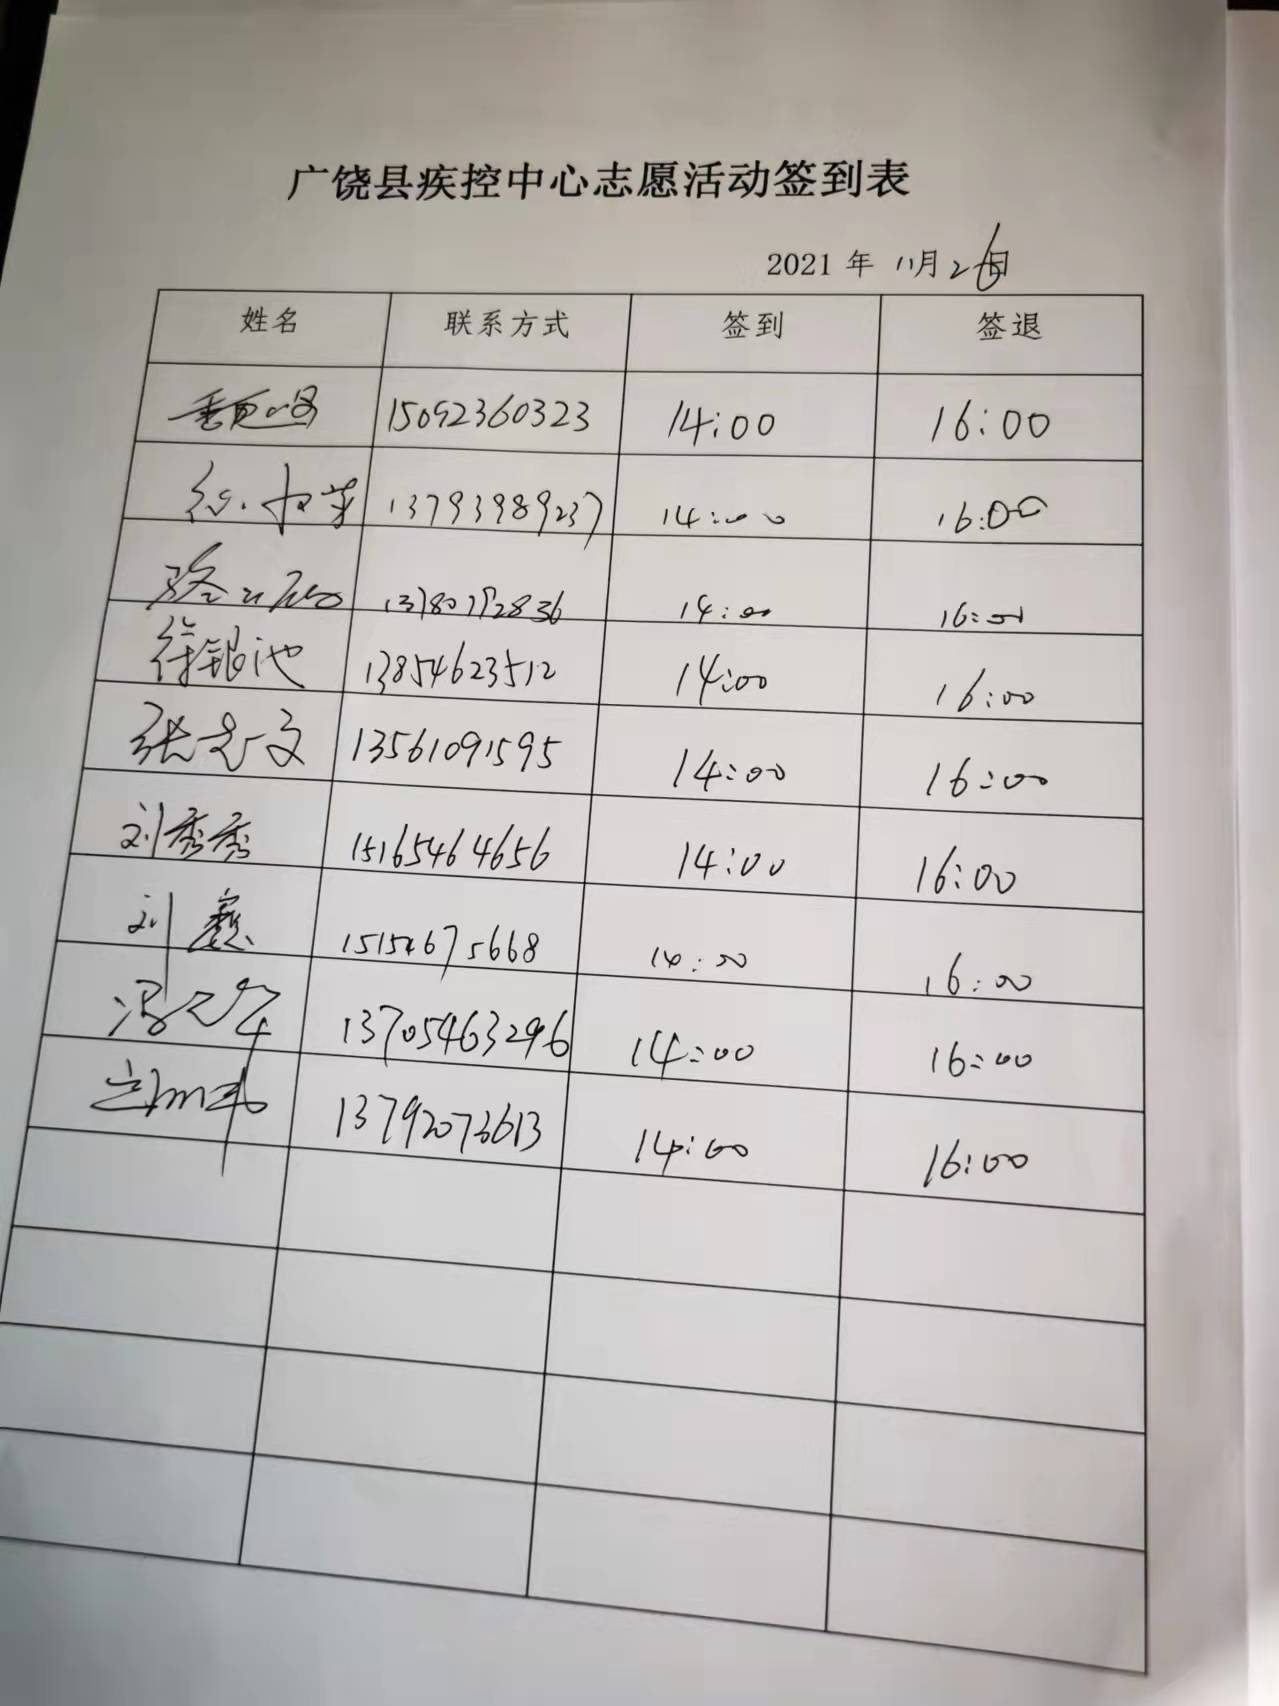 广饶县疾控中心志愿活动签到表
2021 年 11月26日
姓名 联系方式 签到 签退
15092360323 14:00 16:00
13793989237 14:00 16:00
14:00 16:00
徐银池 13854623512 14:00 16:00
张志文 13561091595 14:00 16:00
刘秀秀 15165464656 14:00 16:00
刘 15154675668 14:00 16:00
13705463296 14:00 16:00
13792073613 14:00 16:00